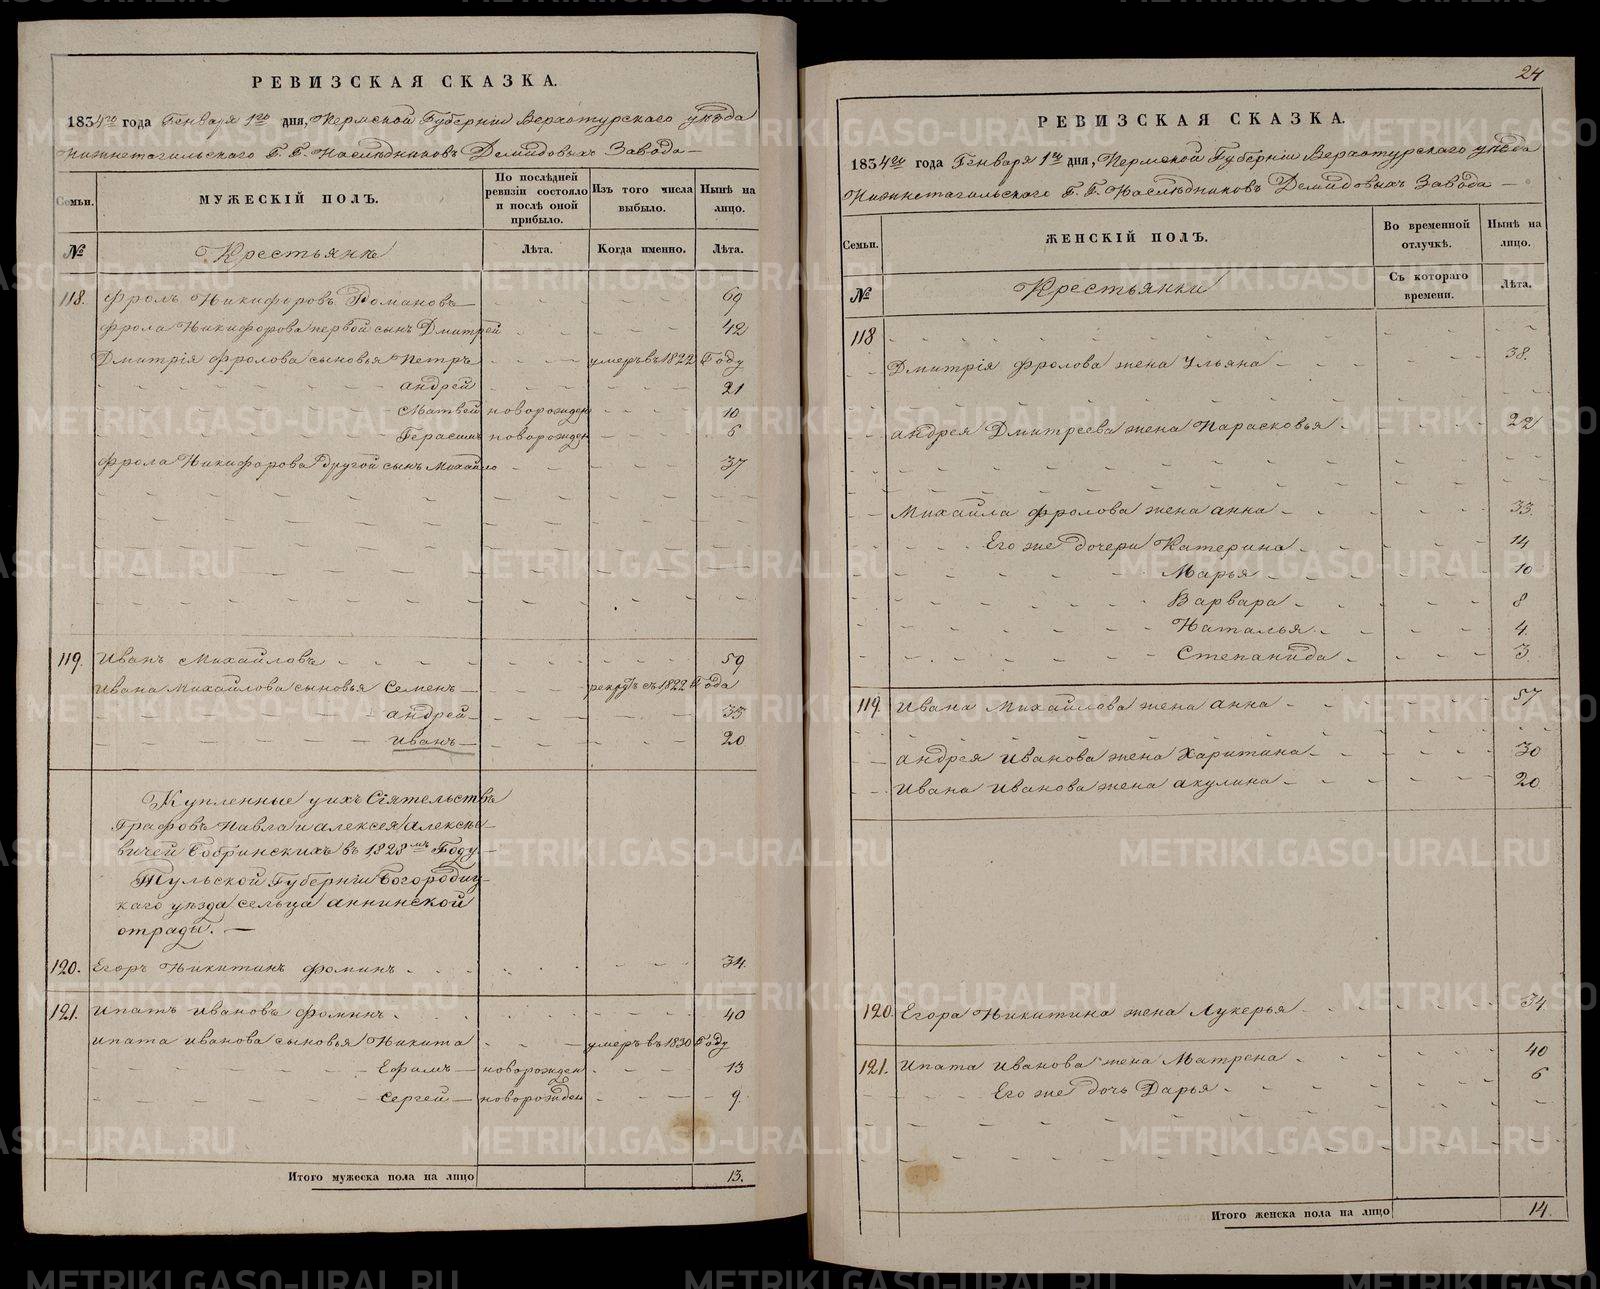 РЕВИЗСКАЯ СКАЗКА.
1834го года Генваря 1го дня, Пермской Губернии Верхотурскаго уѣзда
Нижнетагильскаго Г. Г. Наслѣдниковъ Демидовыхъ Завода
Семьи. МУЖЕСКІЙ ПОЛЪ. По послѣдней ревизіи состояло и послѣ оной прибыло. Изъ того числа выбыло. Нынѣ на лицо.
№ Крестьяне Лѣта. Когда именно. Лѣта.
118. Фролъ Никифоровъ Романовъ 69
Фрола Никифорова первой сынъ Дмитрей 42
Дмитрія Фролова сыновья Петръ умеръ въ 1822 Году
Андрей 21
Матвей новорожден 10
Герасимъ новорожден 6
Фрола Никифорова другой сынъ Михайло 37
119. Иванъ Михайловъ 59
Ивана Михайлова сыновья Семенъ рекрутъ съ 1822 Года
Андрей 33
Иванъ 20
Купленные у ихъ Сіятельствъ
Графовъ Павла и Алексея Алексѣе-
вичей Бобринскихъ въ 1828мъ Году.
Тульской Губерніи Богородиц-
каго уѣзда сельца Аннинской
отрады.
120. Егоръ Никитинъ Фоминъ 34.
121. Ипатъ Ивановъ Фоминъ 40
Ипата Иванова сыновья Никита умеръ въ 1830 Году
Ефимъ новорожден 13
Сергей новорожден 9
Итого мужеска пола на лицо 13.
24
РЕВИЗСКАЯ СКАЗКА.
1834го года Генваря 1го дня, Пермской Губерніи Верхотурскаго уѣзда
Нижнетагильскаго Г. Г. Наслѣдниковъ Демидовыхъ Завода
Семьи. ЖЕНСКІЙ ПОЛЪ. Во временной отлучкѣ. Нынѣ на лицо.
№ Крестьянки Съ котораго времени. Лѣта.
118
Дмитрія Фролова жена Ульяна 38.
Андрея Дмитреева жена Парасковья 22
Михайла Фролова жена Анна 33.
Его же дочери Катерина 14
Марья 10
Варвара 8
Наталья 4.
Степанида 3
119. Ивана Михайлова жена Анна 57
Андрея Иванова жена Харитина 30
Ивана Иванова жена Акулина 20
120. Егора Никитина жена Лукерья 34
121. Ипата Иванова жена Матрена 40
Его же дочь Дарья 6
Итого женска пола на лицо 14.
METRIKI.GASO-URAL.RU